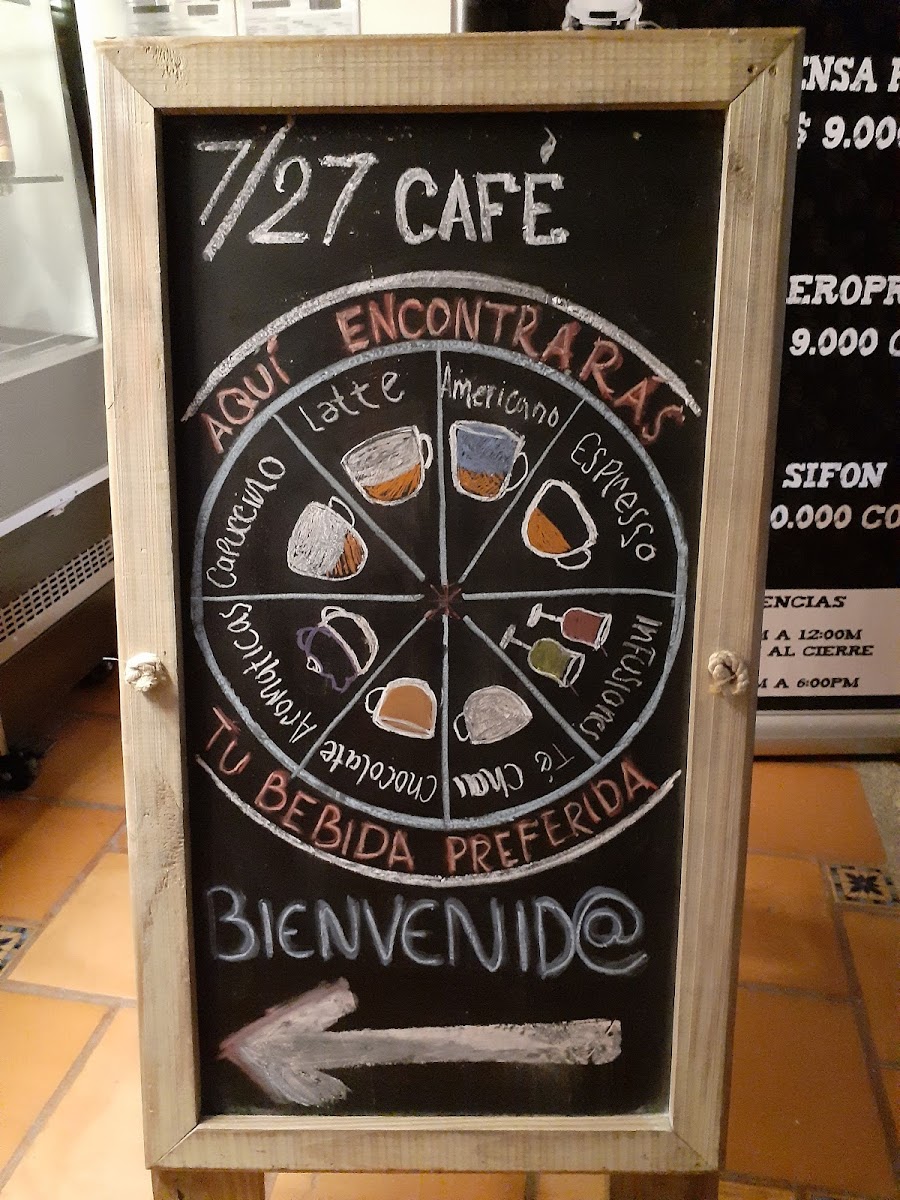 7/27 CAFÉ
AQUÍ ENCONTRARÁS
Latte
Americano
Espresso
Infusiones
Té Chai
Chocolate
Aromáticas
Capuccino
TU BEBIDA PREFERIDA
BIENVENID@
ENSA
$ 9.000
EROPR
9.000 C
SIFON
0.000 CO
ENCIAS
M A 12:00M
AL CIERRE
M A 6:00PM